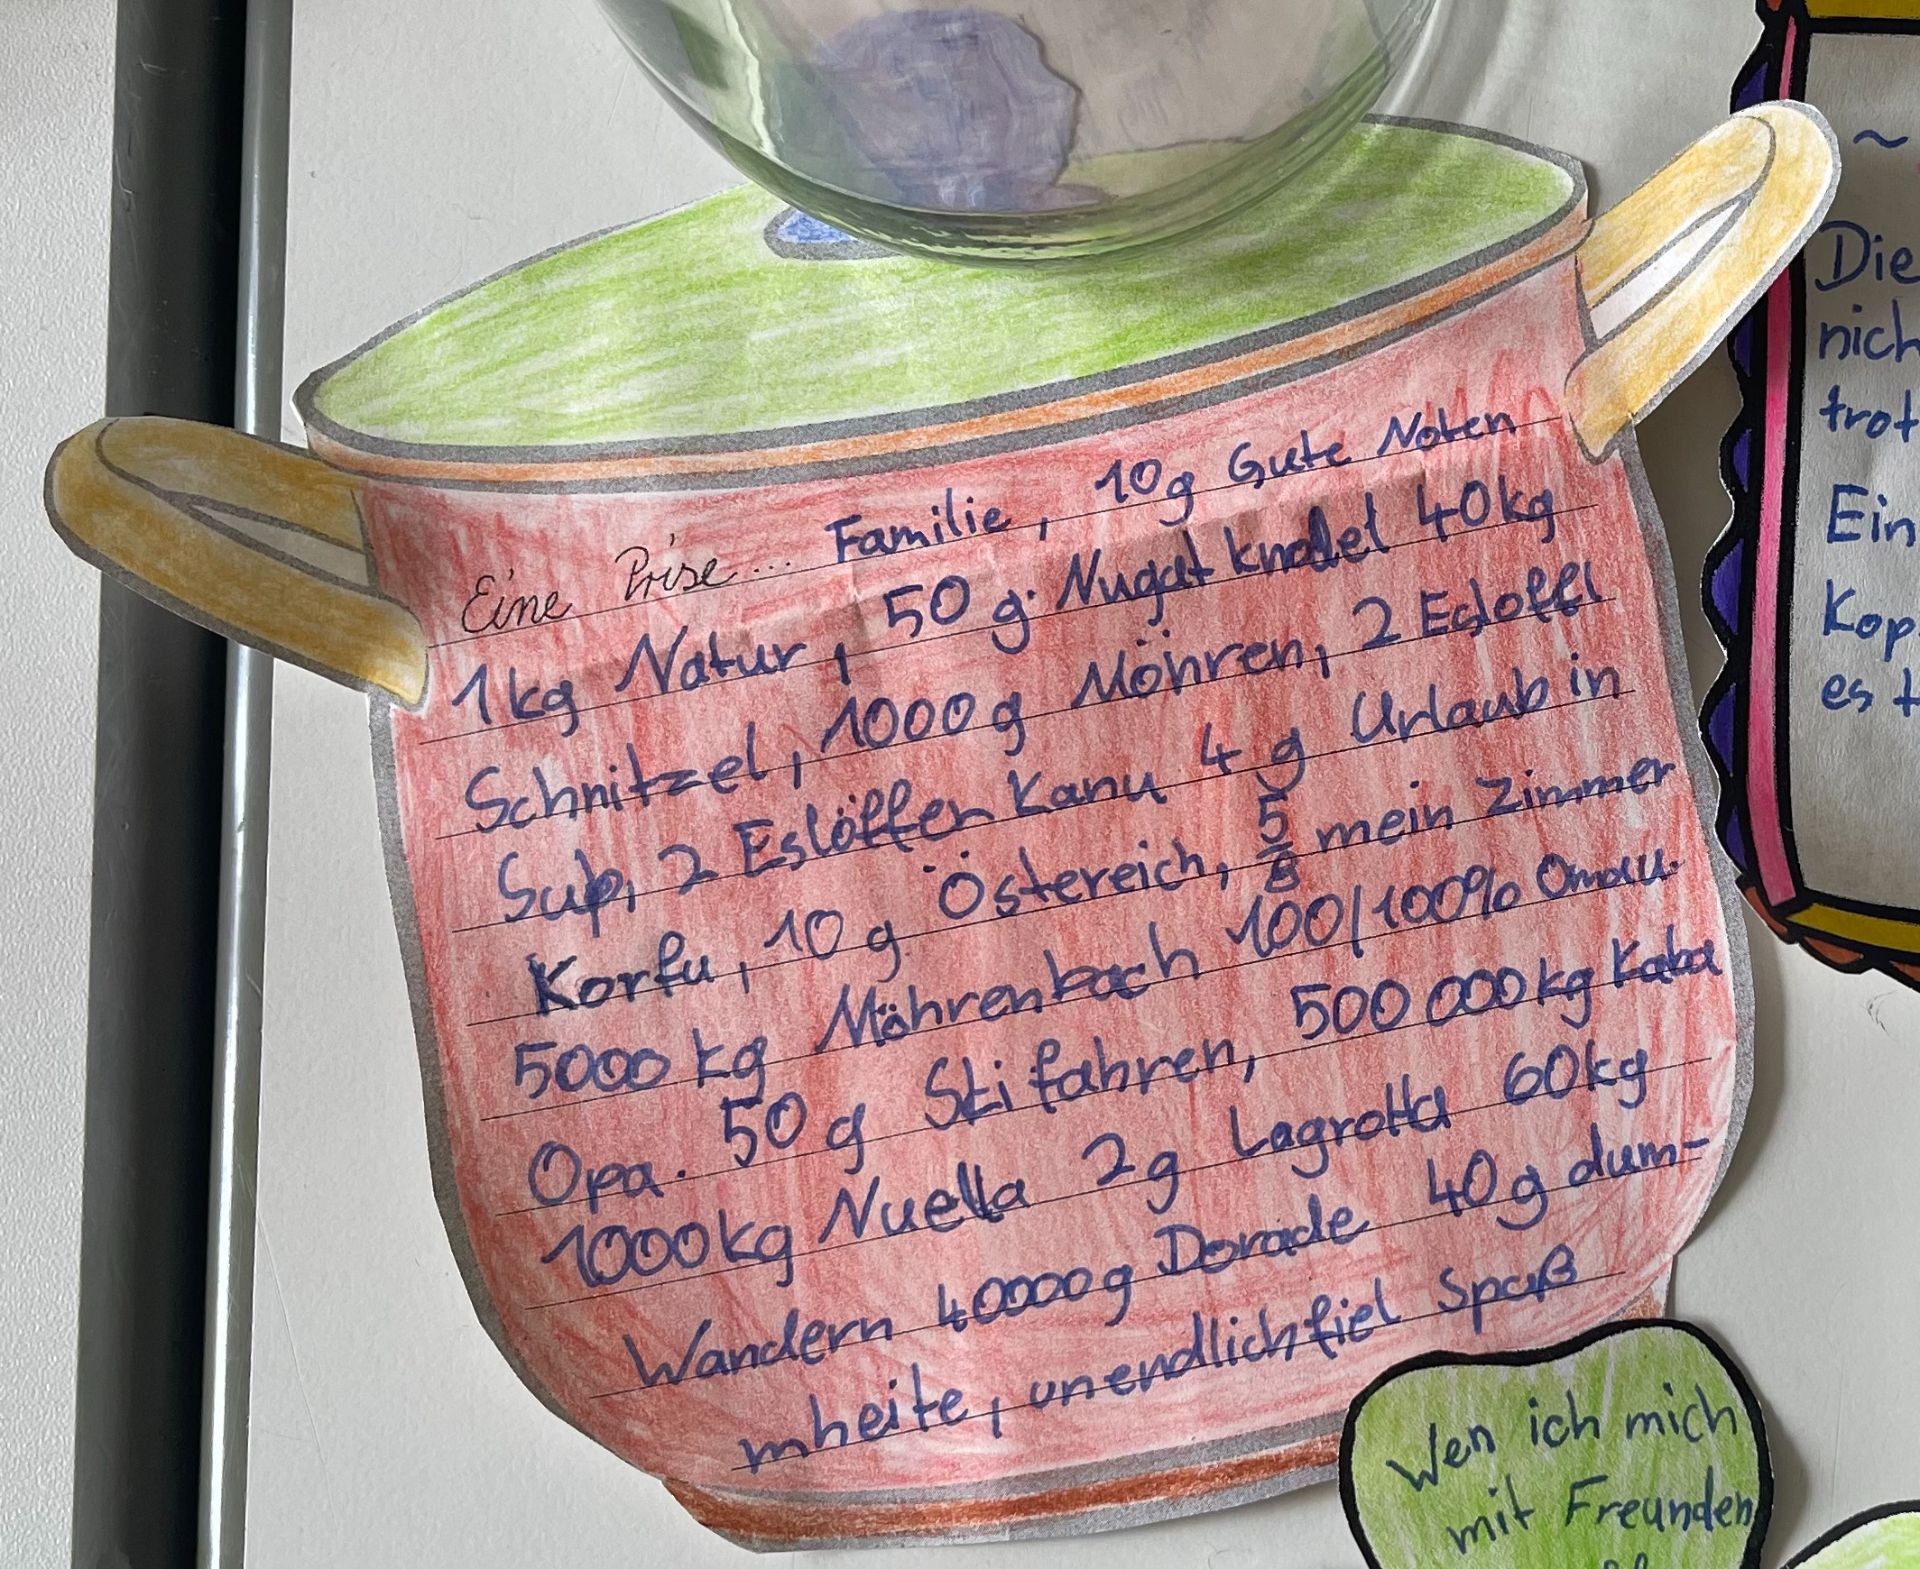 Eine Prise... Familie, 10g Gute Noten
1kg Natur, 50g Nugat knödel 40kg
Schnitzel, 1000g Möhren, 2 Eslöffl
Sup, 2 Eslöffen Kanu 4g Urlaub in
Korfu, 10g Östereich, 5/8 mein Zimmer
5000kg Möhrenbach 100/100% Oma u.
Opa. 50g Ski fahren, 500 000kg Kaba
1000kg Nuella 2g Lagrotta 60kg
Wandern 40000g Dorade 40g dum-
mheite, unendlichfiel Spaß
Wen ich mich
mit Freunden
~
Die
nich
trot
Ein
Kop
es t